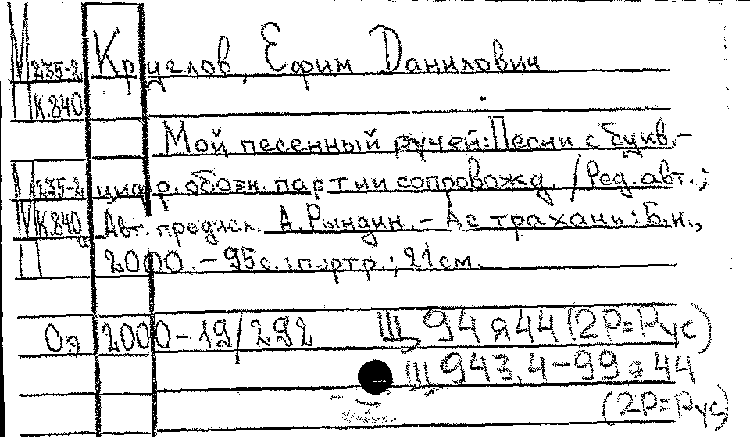 М235-2 Круглов, Ефим Данилович
П К.840
Мой песенный ручей: Песни с букв.-
М235-2 цифр. обозн. партии сопровожд. / Ред. авт.;
К.840 Авт. предисл. А. Рындин. - Астрахань: Б.и.,
П 2000. - 95 с.: портр.; 21 см.
2000-19/292 Щ 94 я 44 (2Р=Рус)
Щ 943,4-99 я 44
(2Р=Рус)